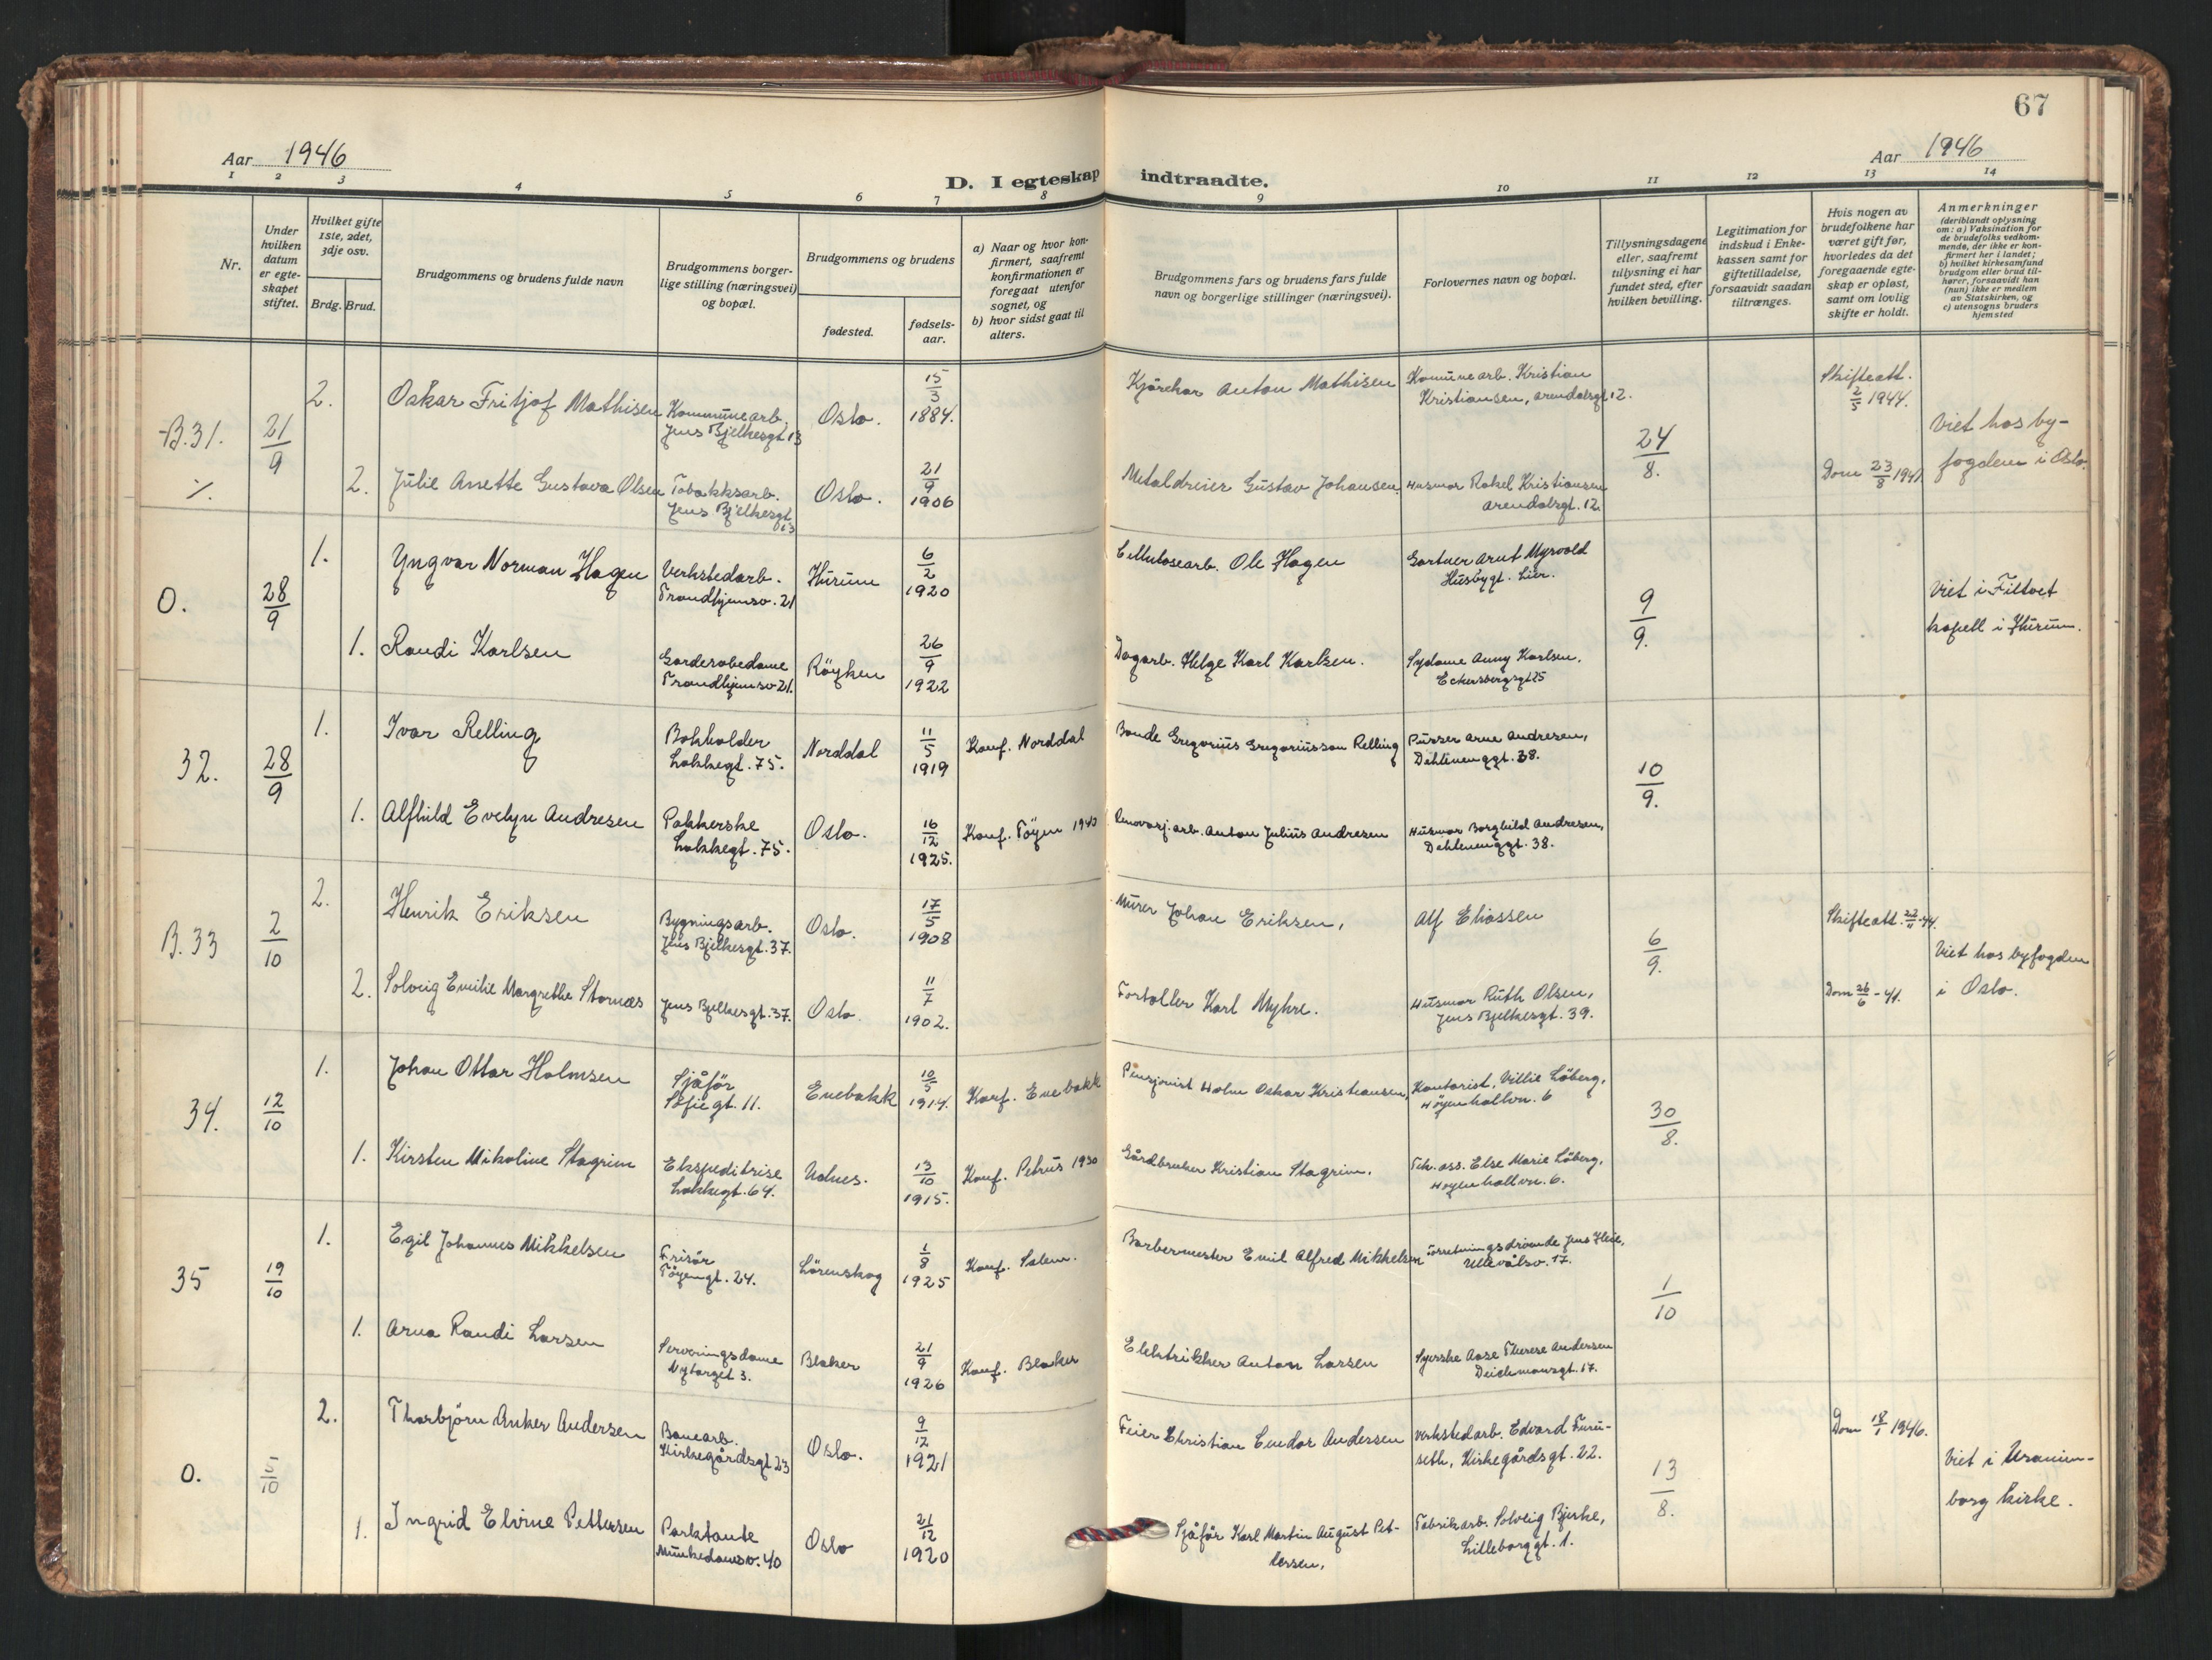 67
Aar 1946
Aar 1946
D. I egteskap indtraadte.
1 2 3 4 5 6 7 8 9 10 11 12 13 14
Nr.
Under hvilken datum er egteskapet stiftet.
Hvilket gifte 1ste, 2det, 3dje osv.
Brdg. Brud.
Brudgommens og brudens fulde navn
Brudgommens borgerlige stilling (næringsvei) og bopæl.
Brudgommens og brudens
fødested.
fødselsaar.
a) Naar og hvor konfirmert, saafremt konfirmationen er foregaat utenfor sognet, og
b) hvor sidst gaat til alters.
Brudgommens fars og brudens fars fulde navn og borgerlige stillinger (næringsvei).
Forlovernes navn og bopæl.
Tillysningsdagene eller, saafremt tillysning ei har fundet sted, efter hvilken bevilling.
Legitimation for indskud i Enkekassen samt for giftetilladelse, forsaavidt saadan tiltrænges.
Hvis nogen av brudefolkene har været gift før, hvorledes da det foregaaende egteskap er opløst, samt om lovlig skifte er holdt.
Anmerkninger
(deriblandt oplysning om: a) Vaksination for de brudefolks vedkommende, der ikke er konfirmert her i landet; b) hvilket kirkesamfund brudgom eller brud tilhører, forsaavidt han (hun) ikke er medlem av Statskirken, og c) utensogns bruders hjemsted
B.31. 21/9 2. Oskar Fritjof Mathisen Kommunearb. Jens Bjelkesgt 13 Oslo. 15/3 1884. Kjørekar Anton Mathisen Komunearb. Kristian Kristiansen, Arendalsgt 12. 24/8. Skifteatt. 2/5 1944. Viet hos byfogden i Oslo.
%. 2. Julie Anette Gustava Olsen Tobakksarb. Jens Bjelkesgt 13 Oslo. 21/9 1906 Metaldreier Gustav Johansen. Husmor Rakel Kristiansen Arendalsgt. 12. Dom 23/8 1941
O. 28/9 1. Yngvar Norman Hagen Verkstedarb. Trondhjemsv. 21 Hurum 6/2 1920 Cellulosearb. Ole Hagen Gartner Arnt Myrvold Husbygt. Lier. 9/9. Viet i Filtvet kapell i Hurum.
1. Randi Karlsen Garderobedame Trondhjemsv 21. Röyken 26/9 1922 Dagarb. Helge Karl Karlsen. Sydame Anny Karlsen, Eckersbergsgt 25
32. 28/9 1. Ivar Relling Bokholder Lakkegt. 75. Norddal 11/5 1919 Konf. Norddal Bonde Gregorius Gregoriusson Relling Purser Arne Andresen, Dehlienenggt. 38. 10/9.
1. Alfhild Evelyn Andresen Pakkerske Lakkegt. 75. Oslo. 16/12 1925. Konf. Töyen 1940 Renovasj.arb. Anton Julius Andresen Husmor Borghild Andresen, Dehlienenggt. 38.
B.33 2/10 2. Henrik Eriksen Bygningsarb. Jens Bjelkesgt. 37. Oslo. 17/5 1908 Murer Johan Eriksen, Alf Eliassen 6/9. Skifteatt. 22/11-44. Viet hos byfogden i Oslo.
2. Solveig Emilie Margrethe Stornæs Jens Bjelkesgt. 37. Oslo. 11/7 1902. Fortoller Karl Myhre. Husmor Ruth Olsen, Jens Bjelkesgt. 39. Dom 26/6-41.
34. 12/10 1. Johan Ottar Holmsen Sjåför Sofiegt. 11. Enebakk 10/5 1914. Konf. Enebakk Pensjonist Holm Oskar Kristiansen, Kontorist, Villie Löberg, Höyenhallvn. 6 30/8.
1. Kirsten Nikoline Stagrim Ekspeditrise Lakkegt. 64. Valnes. 13/10 1915. Konf. Petrus 1930 Gårdbruker Kristian Stagrim. Tek. ass. Else Marie Löberg, Höyenhallvn. 6.
35 19/10 1. Egil Johannes Mikkelsen Frisör Töyengt. 24. Lörenskog 1/8 1925 Konf. Salem. Barbermester Emil Alfred Mikkelsen Forretningsdrivende Jens Heie, Ullevålsv. 17. 1/10
1. Arna Randi Larsen Serveringsdame Nytorget 3. Blaker 21/9 1926 Konf. Blaker Elektrikker Anton Larsen Syerske Aase Therese Andersen Deichmansgt. 17.
O. 5/10 2. Thorbjörn Anker Andersen Banearb. Kirkegårdsgt 23 Oslo. 9/12 1921 Feier Christian Eendor Andersen Verkstedarb. Edvard Furuseth, Kirkegårdsgt. 22. 13/8. Dom 18/1 1946. Viet i Uranienborg kirke.
1. Ingrid Elvine Pettersen Parktante Munkedamsv. 40 Oslo 21/12 1920 Sjåför Karl Martin August Pettersen, Fabrikarb. Solveig Bjerke, Lilleborggt. 1.